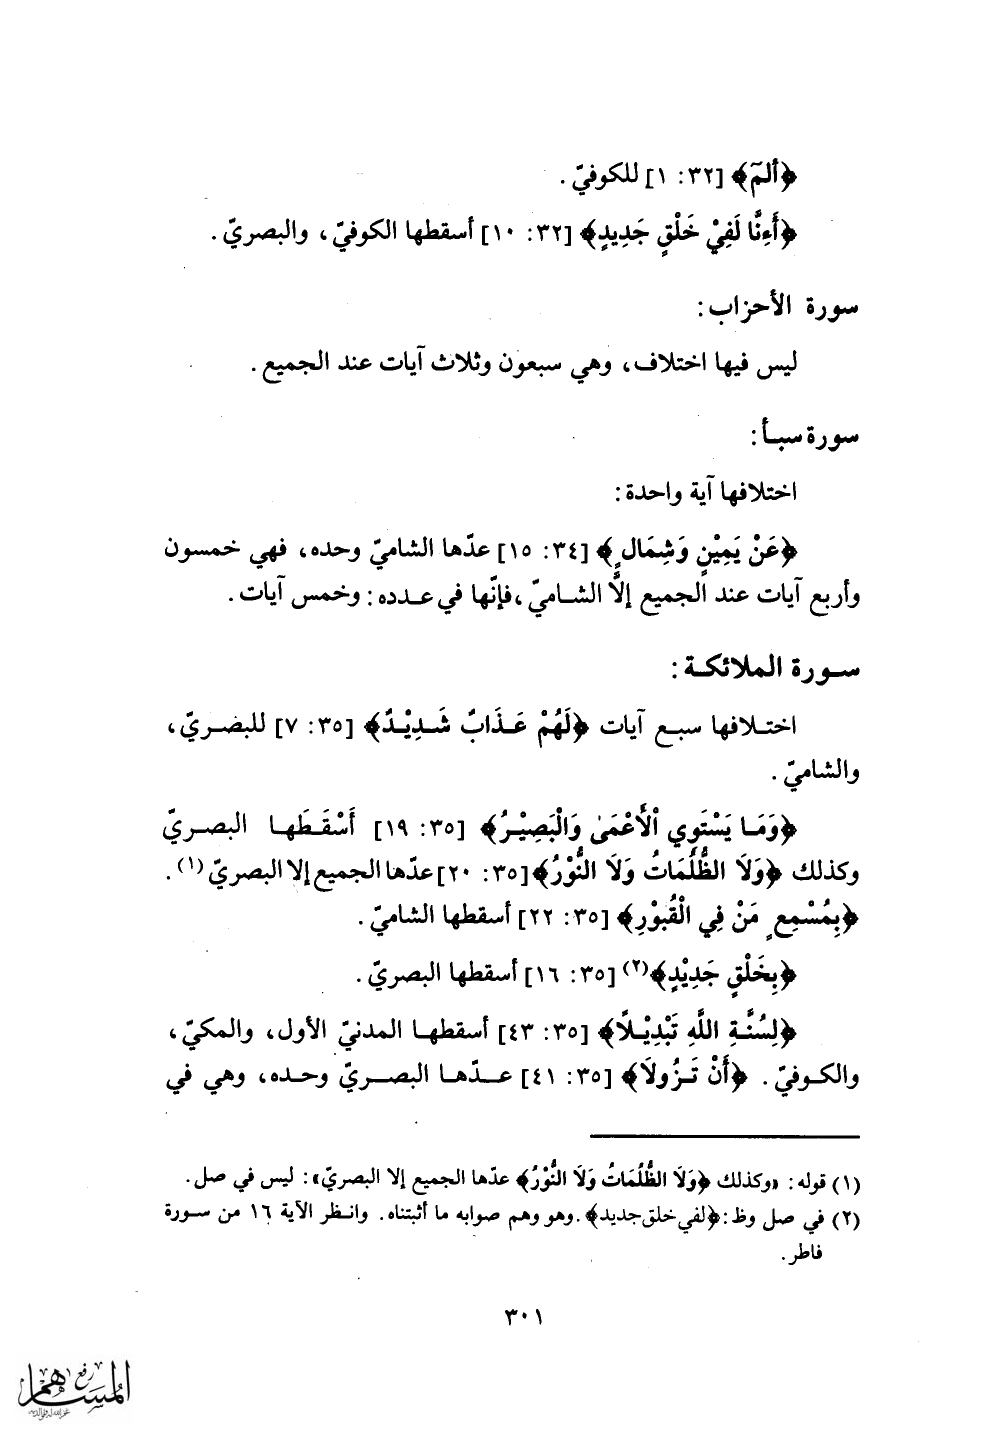 ﴿ألمٓ﴾ [٣٢: ١] للكوفيّ.
﴿أَءِنَّا لَفِيْ خَلْقٍ جَدِيدٍ﴾ [٣٢: ١٠] أسقطها الكوفيّ، والبصريّ.
سورة الأحزاب:
ليس فيها اختلاف، وهي سبعون وثلاث آيات عند الجميع.
سورة سبأ:
اختلافها آية واحدة:
﴿عَنْ يَمِيْنٍ وَشِمَالٍ﴾ [٣٤: ١٥] عدّها الشاميّ وحده، فهي خمسون
وأربع آيات عند الجميع إلَّا الشاميّ، فإنّها في عدده: وخمس آيات.
سورة الملائكة:
اختلافها سبع آيات ﴿لَهُمْ عَذَابٌ شَدِيْدٌ﴾ [٣٥: ٧] للبصريّ،
والشاميّ.
﴿وَمَا يَسْتَوِي الْأَعْمَىٰ وَالْبَصِيْرُ﴾ [٣٥: ١٩] أَسْقَطَها البصريّ
وكذلك ﴿وَلَا الظُّلُمَاتُ وَلَا النُّوْرُ﴾ [٣٥: ٢٠] عدّها الجميع إلا البصريّ(١).
﴿بِمُسْمِعٍ مَنْ فِي الْقُبُوْرِ﴾ [٣٥: ٢٢] أسقطها الشاميّ.
﴿بِخَلْقٍ جَدِيْدٍ﴾(٢) [٣٥: ١٦] أسقطها البصريّ.
﴿لِسُنَّةِ اللَّهِ تَبْدِيْلًا﴾ [٣٥: ٤٣] أسقطها المدنيّ الأول، والمكيّ،
والكوفيّ. ﴿أَنْ تَزُولَا﴾ [٣٥: ٤١] عدّها البصريّ وحده، وهي في
(١) قوله: «وكذلك ﴿وَلَا الظُّلُمَاتُ وَلَا النُّوْرُ﴾ عدّها الجميع إلا البصريّ»: ليس في صل.
(٢) في صل وظ: ﴿لفي خلق جديد﴾. وهو وهم صوابه ما أثبتناه. وانظر الآية ١٦ من سورة
فاطر.
٣٠١